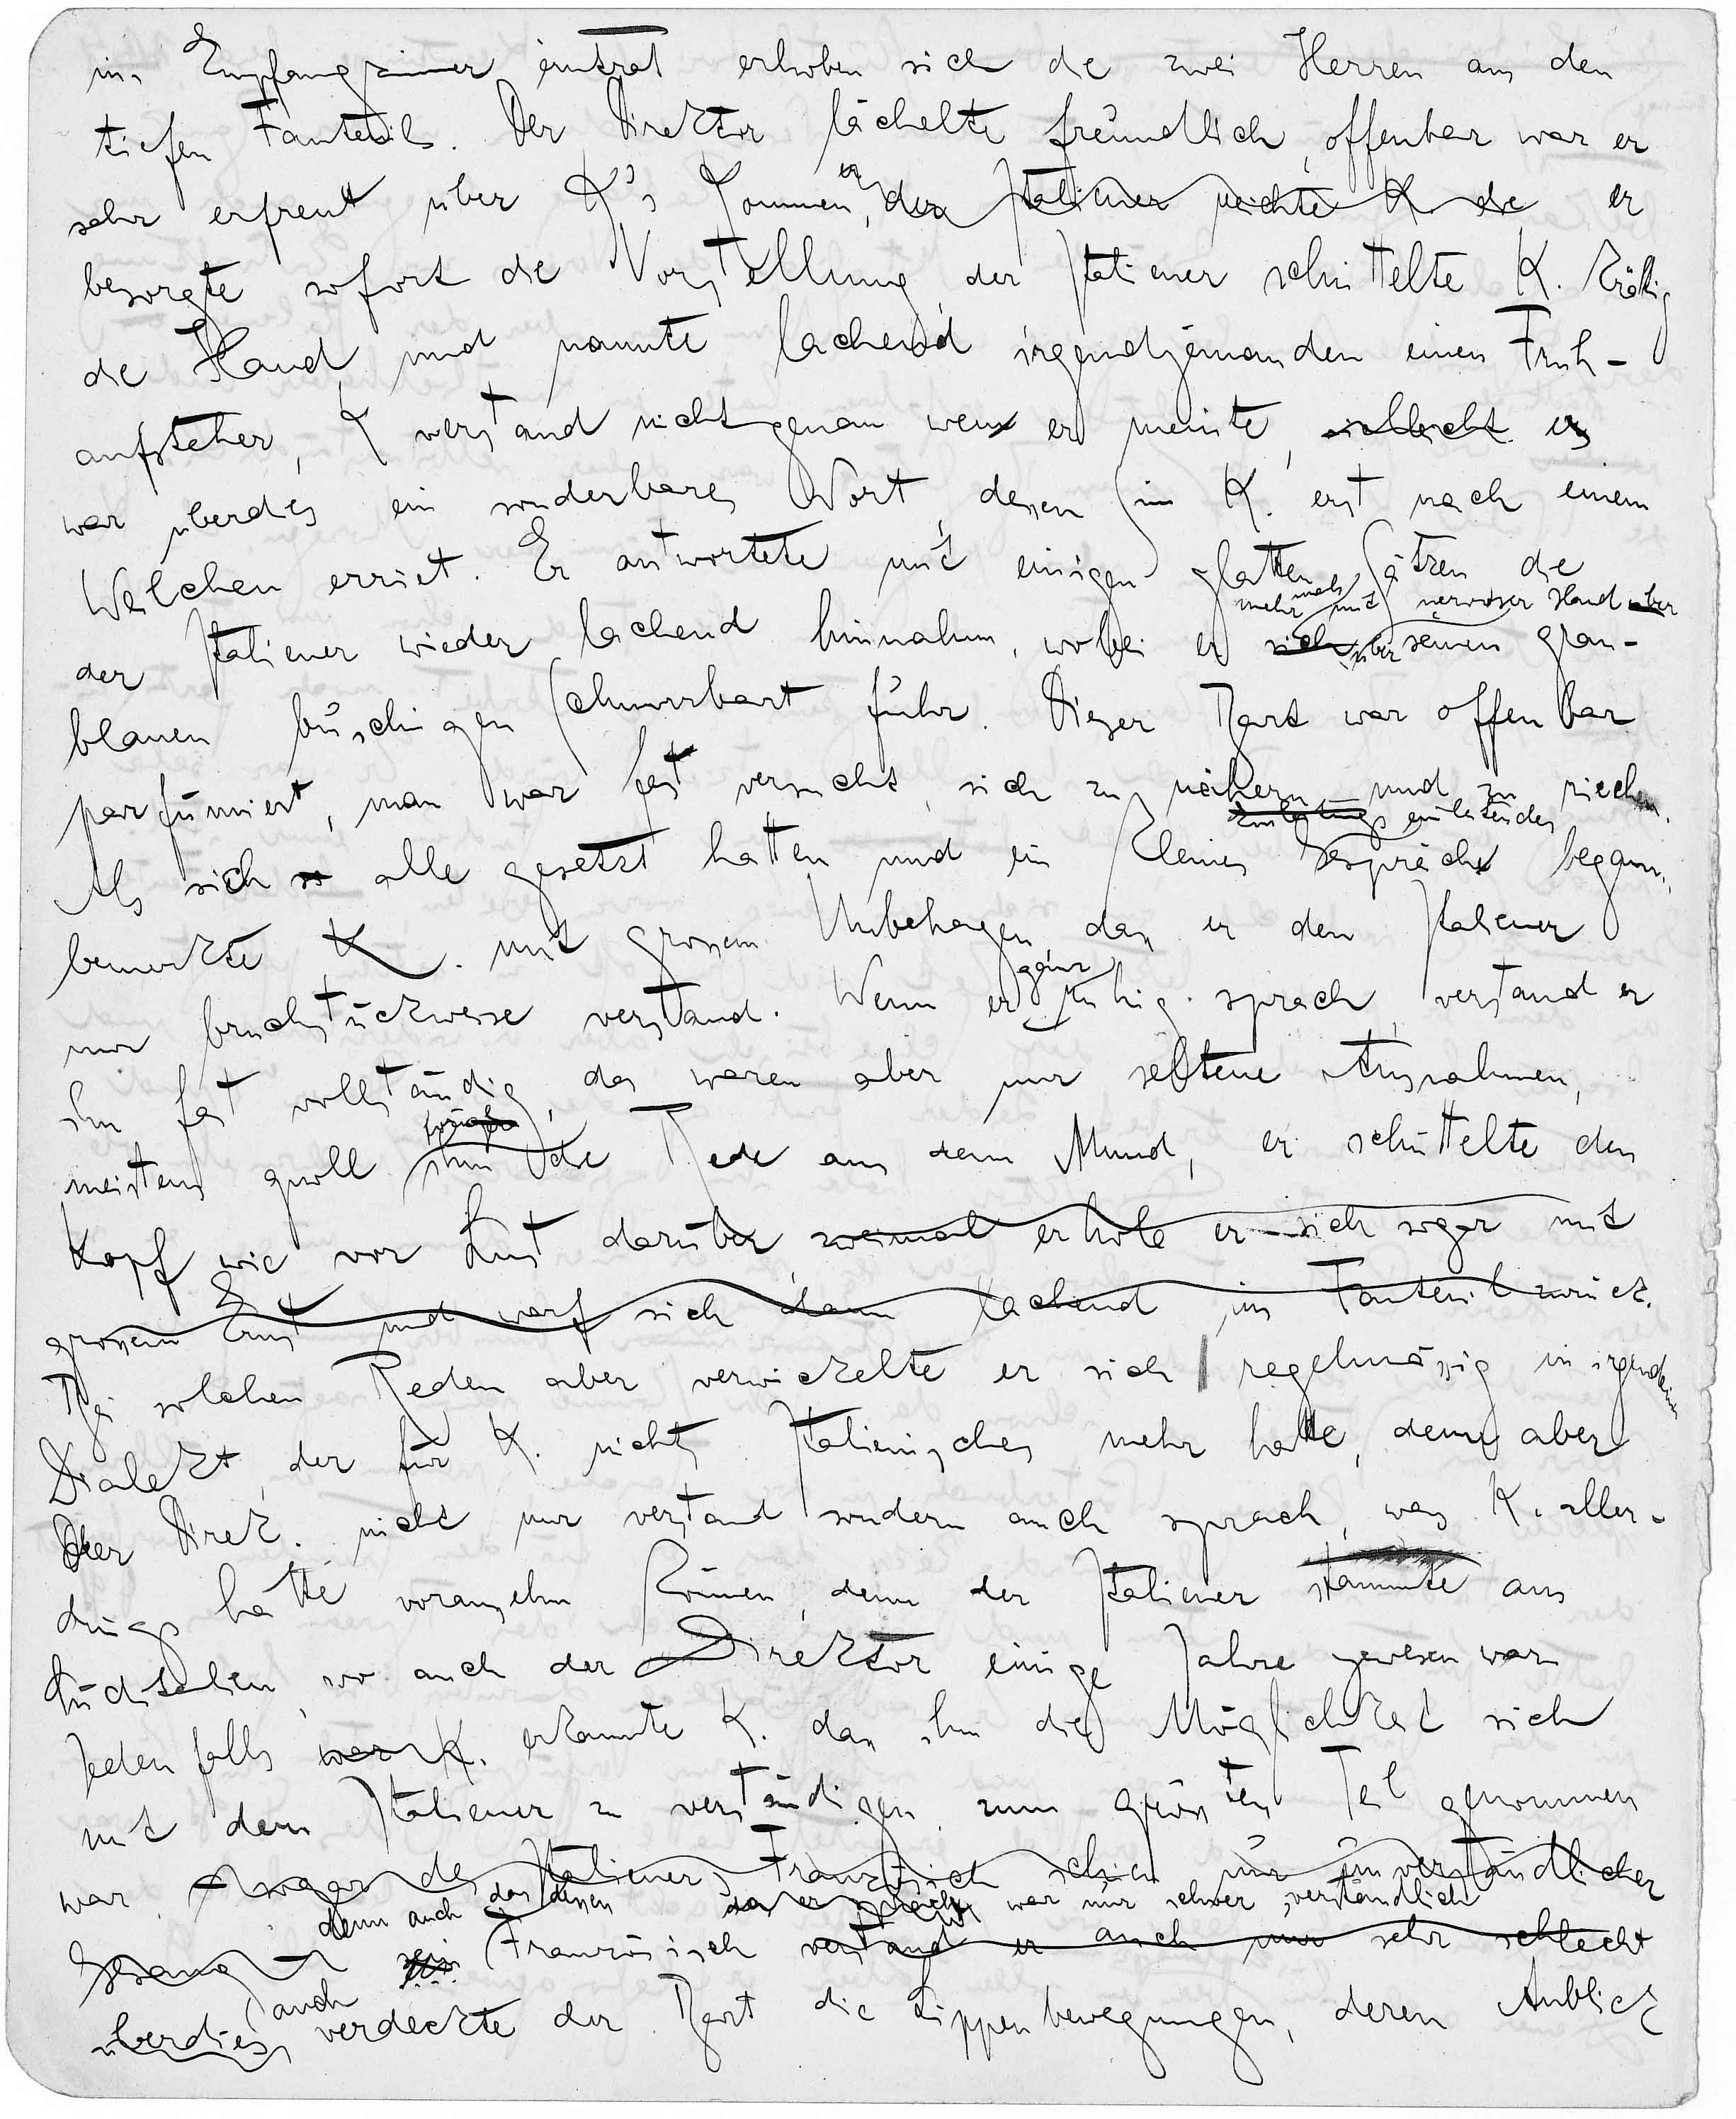 ins Empfangszimmer eintrat erhoben sich die zwei Herren aus den
tiefen Fauteuils. Der Direktor lächelte freundlich, offenbar war er
sehr erfreut über K's Kommen, er der Italiener reichte K. die er
besorgte sofort die Vorstellung, der Italiener schüttelte K. kräftig
die Hand und nannte lachend irgendjemanden einen Früh-
aufsteher, K verstand nicht genau wen er meinte, vielleicht es
war überdies ein sonderbares Wort, dessen Sinn K. erst nach einem
Weilchen erriet. Er antwortete mit einigen glatten Sätzen die
mehrmals mit nervöser Hand über
der Italiener wieder lachend hinnahm, wobei er sich über seinen grau-
blauen buschigen Schnurrbart fuhr. Dieser Bart war offenbar
parfümiert, man war fast versucht, sich zu nähern und zu riechen.
Einleitungs einleitendes
Als sich so alle gesetzt hatten und ein kleines Gespräch begann,
bemerkte K. mit grossem Unbehagen, dass er den Italiener
ganz
nur bruchstückweise verstand. Wenn er ruhig sprach, verstand er
ihn fast vollständig, das waren aber nur seltene Ausnahmen,
meistens quoll ihm die Rede aus dem Mund, er schüttelte den
Kopf wie vor Lust darüber zweimal erhob er sich sogar mit
grossem Ernst und warf sich dann lachend ins Fauteuil zurück.
Bei solchen Reden aber verwickelte er sich regelmässig in irgendeinen
Dialekt, der für K. nichts Italienisches mehr hatte, den aber
der Direk. nicht nur verstand sondern auch sprach, was K. aller-
dings hätte voraussehn können, denn der Italiener stammte aus
Süditalien, wo auch der Direktor einige Jahre gewesen war
Jedenfalls war K. erkannte K. dass ihm die Möglichkeit sich
mit dem Italiener zu verständigen zum grössten Teil genommen
war, sogar des Italieners Französisch schien nur unverständlicher
denn auch das dessen das er sprach war nur schwer verständlich
Gesang sein Französisch verstand er auch nur sehr schlecht
auch
überdies verdeckte der Bart die Lippenbewegungen, deren Anblick